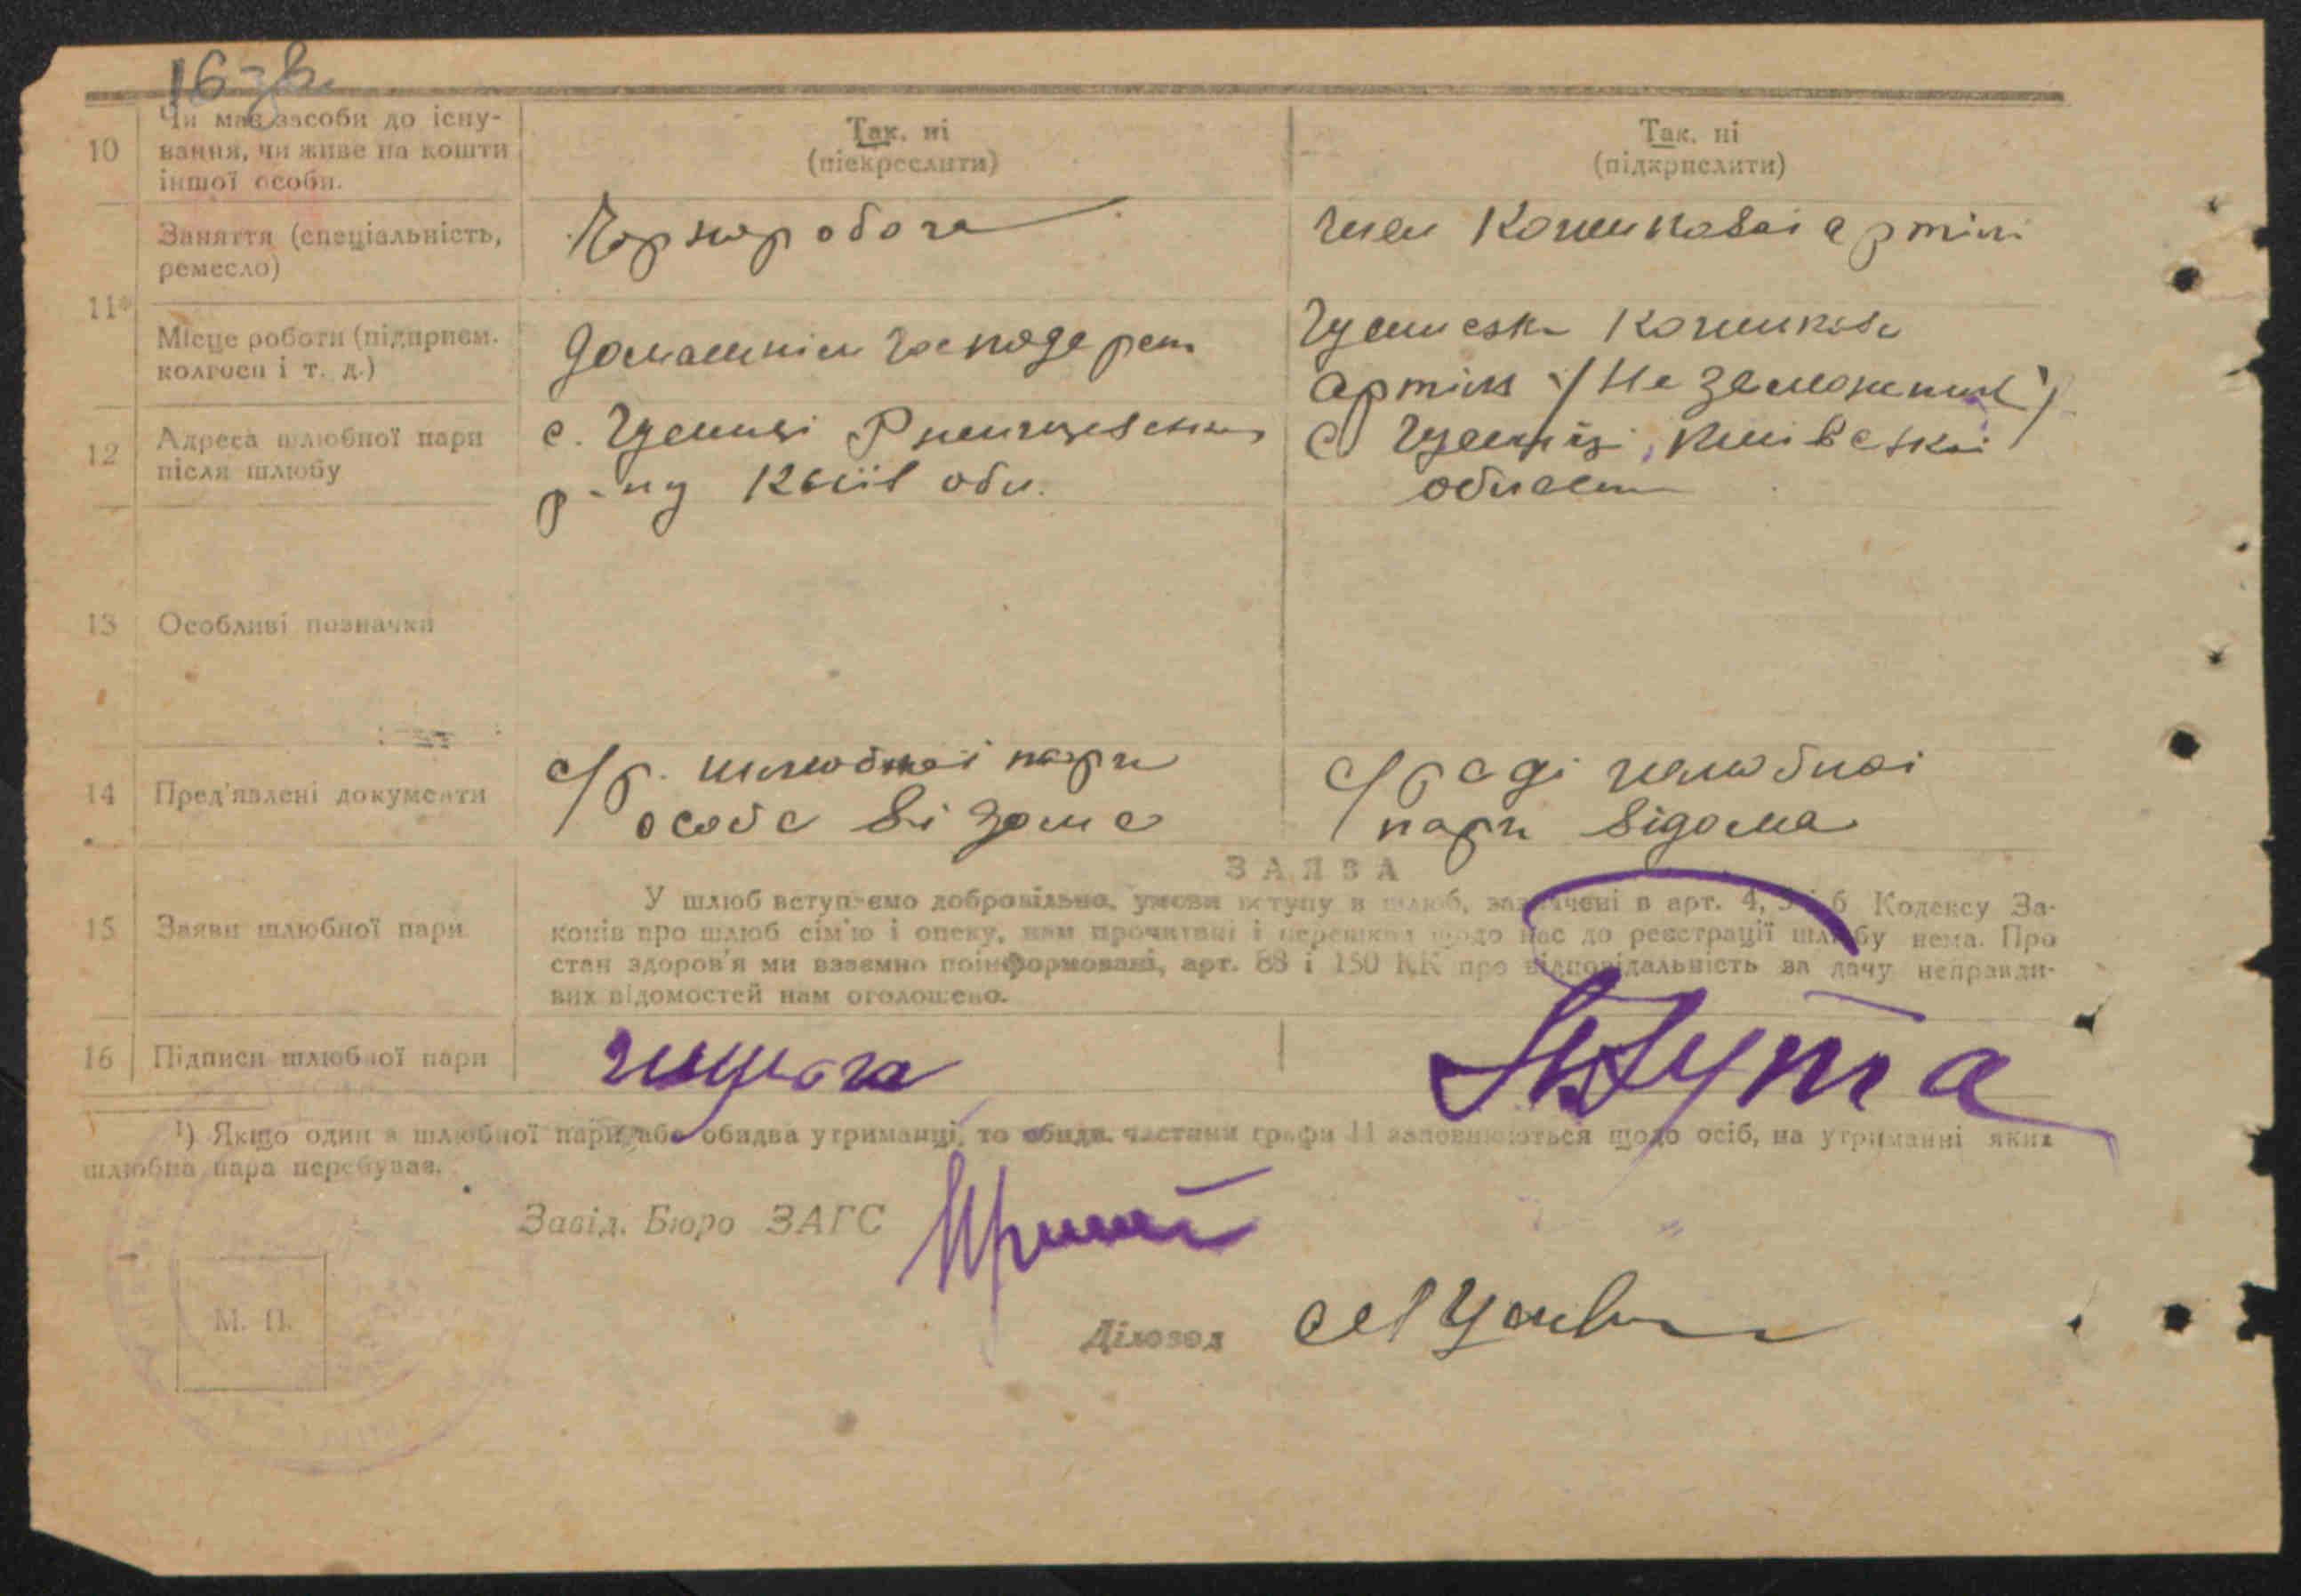 16 зв.
10 Чи має засоби до існу-
вання, чи живе на кошти
іншої особи.
Так. ні
(піекреслити)
Так. ні
(підкрислити)
11*
Заняття (спеціальність,
ремесло)
Чорнороboча
член Кошиковоі артілі
Місце роботи (підприєм.
колгосп і т. д.)
домашнім господарст
Гусинська Кошикова
артіль "Незаможник"
12 Адреса шлюбної пари
після шлюбу
с. Гусинці Ржищевськ
р-ну Київ обл.
с Гусинці, Київської
области
13 Особливі позначки
14 Пред'явлені документи
шлюбноі пари
особа відома
шлюбноі
пари відома
15 Заяви шлюбної пари
ЗАЯВА
У шлюб вступаємо добровільно, умови вступу в шлюб, зазначені в арт. 4, 5 і 6 Кодексу За-
конів про шлюб сім'ю і опеку, нам прочитані і перешкод щодо нас до реєстрації шлюбу нема. Про
стан здоров'я ми взаємно поінформовані, арт. 88 і 150 КК про відповідальність за дачу неправди-
вих відомостей нам оголошено.
16 Підписи шлюбної пари
¹) Якщо один з шлюбної пари, або обидва утриманці, то обидв. частини графи 11 заповнюються щодо осіб, на утриманні яких
шлюбна пара перебуває.
Завід. Бюро ЗАГС
М. П.
Діловод